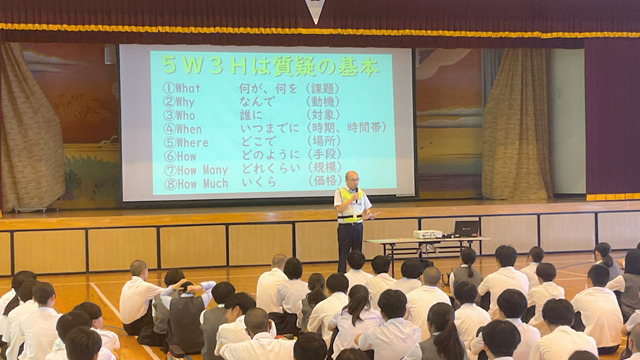 5W3Hは質疑の基本
①What 何が、何を(課題)
②Why なんで (動機)
③Who 誰に (対象)
④When いつまでに(時期、時間帯)
⑤Where どこで (場所)
⑥How どのように(手段)
⑦How Many どれくらい(規模)
⑧How Much いくら (価格)